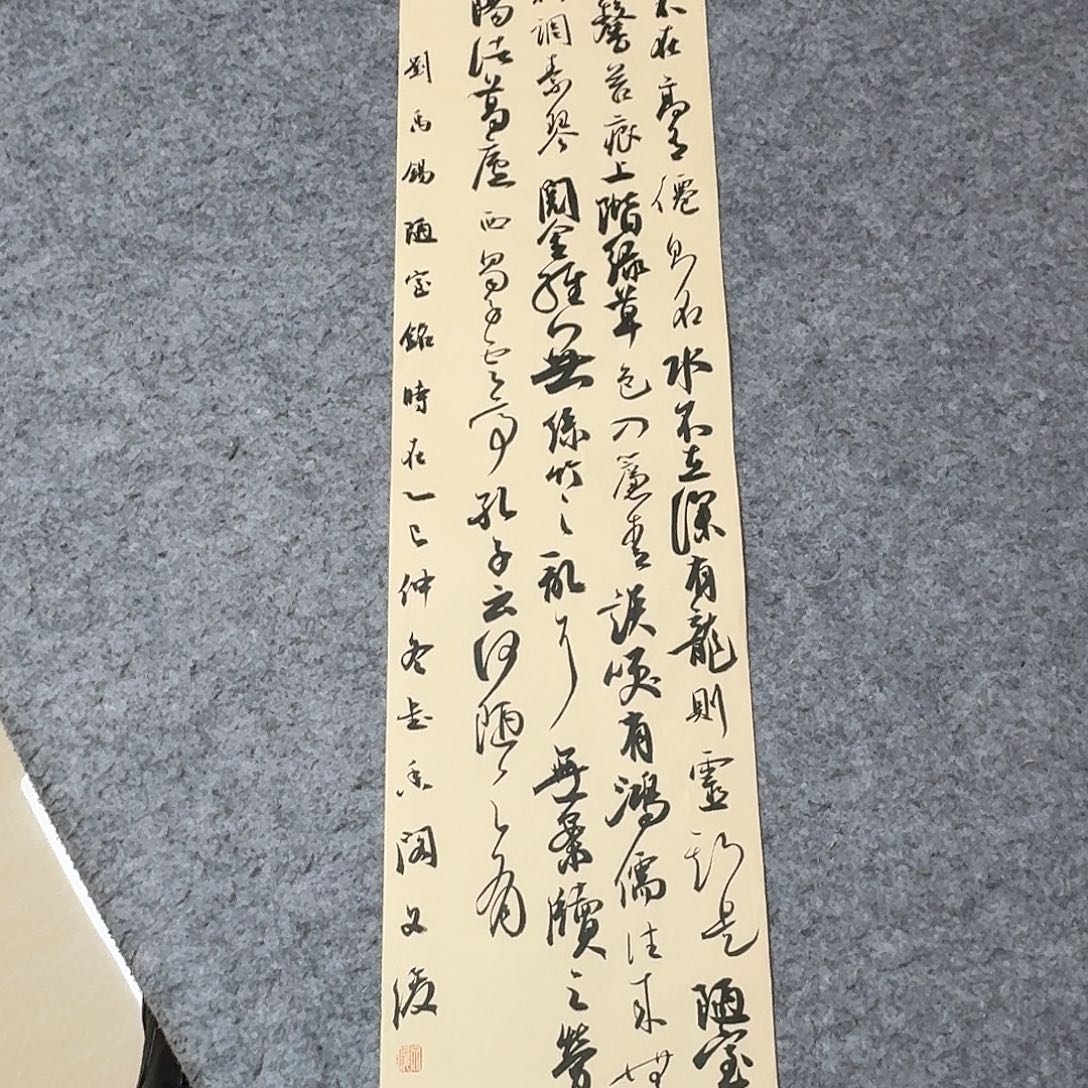 不在高有僊則名水不在深有龍則靈斯是陋室
馨苔痕上階緑草色入簾青談笑有鴻儒往来無
調素琴閲金經無絲竹之亂耳無案牘之勞
陽諸葛廬西蜀子雲亭孔子云何陋之有
劉禹錫陋室銘時在乙巳仲冬書香閣文